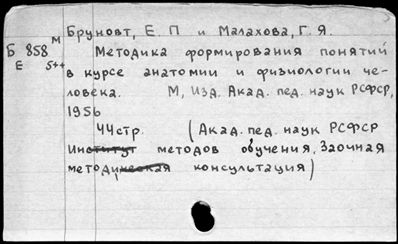 М Бруновт, Е. П и Малахова, Г. Я.
Б 858 Методика формирования понятий
Е 5++ в курсе анатомии и физиологии че-
ловека. М, Изд. Акад. пед. наук РСФСР,
1956
44стр. (Акад. пед. наук РСФСР
Институт методов обучения, Заочная
методическая консультация)